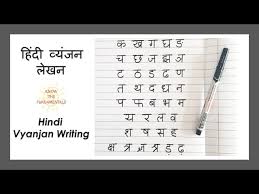 हिंदी व्यंजन
लेखन
KNOW
THE
FUNDAMENTALS
Hindi
Vyanjan Writing
क ख ग घ ङ
च छ ज झ ञ
ट ठ ड ढ ण
त थ द ध न
प फ ब भ म
य र ल व
श ष स ह
क्ष त्र ज्ञ ड़ ढ़